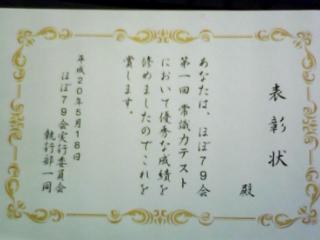 表彰状
殿
あなたは、ほぼ79会
第一回 常識力テスト
において優秀な成績を
修めましたのでこれを
賞します。
平成20年5月18日
ほぼ79会実行委員会
執行部一同